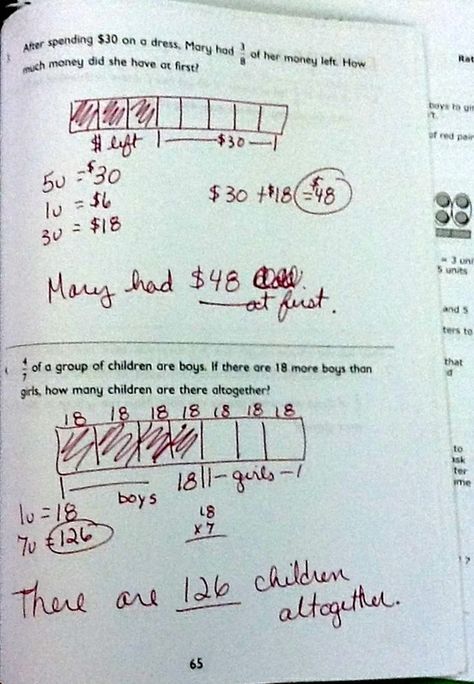 After spending $30 on a dress, Mary had 3/8 of her money left. How
much money did she have at first?
$ left |—$30—|
5u = $30
1u = $6
3u = $18
$30 + $18 = $48
Mary had $48
at first.
4/7 of a group of children are boys. If there are 18 more boys than
girls, how many children are there altogether?
18 18 18 18 18 18 18
boys 18 |-girls-|
1u = 18
7u = 126
18
x 7
There are 126 children
altogether.
65
Rat
boys to
of red pair
= 3 uni
5 units
and 5
ters to
that
d
to
ask
ter
ime